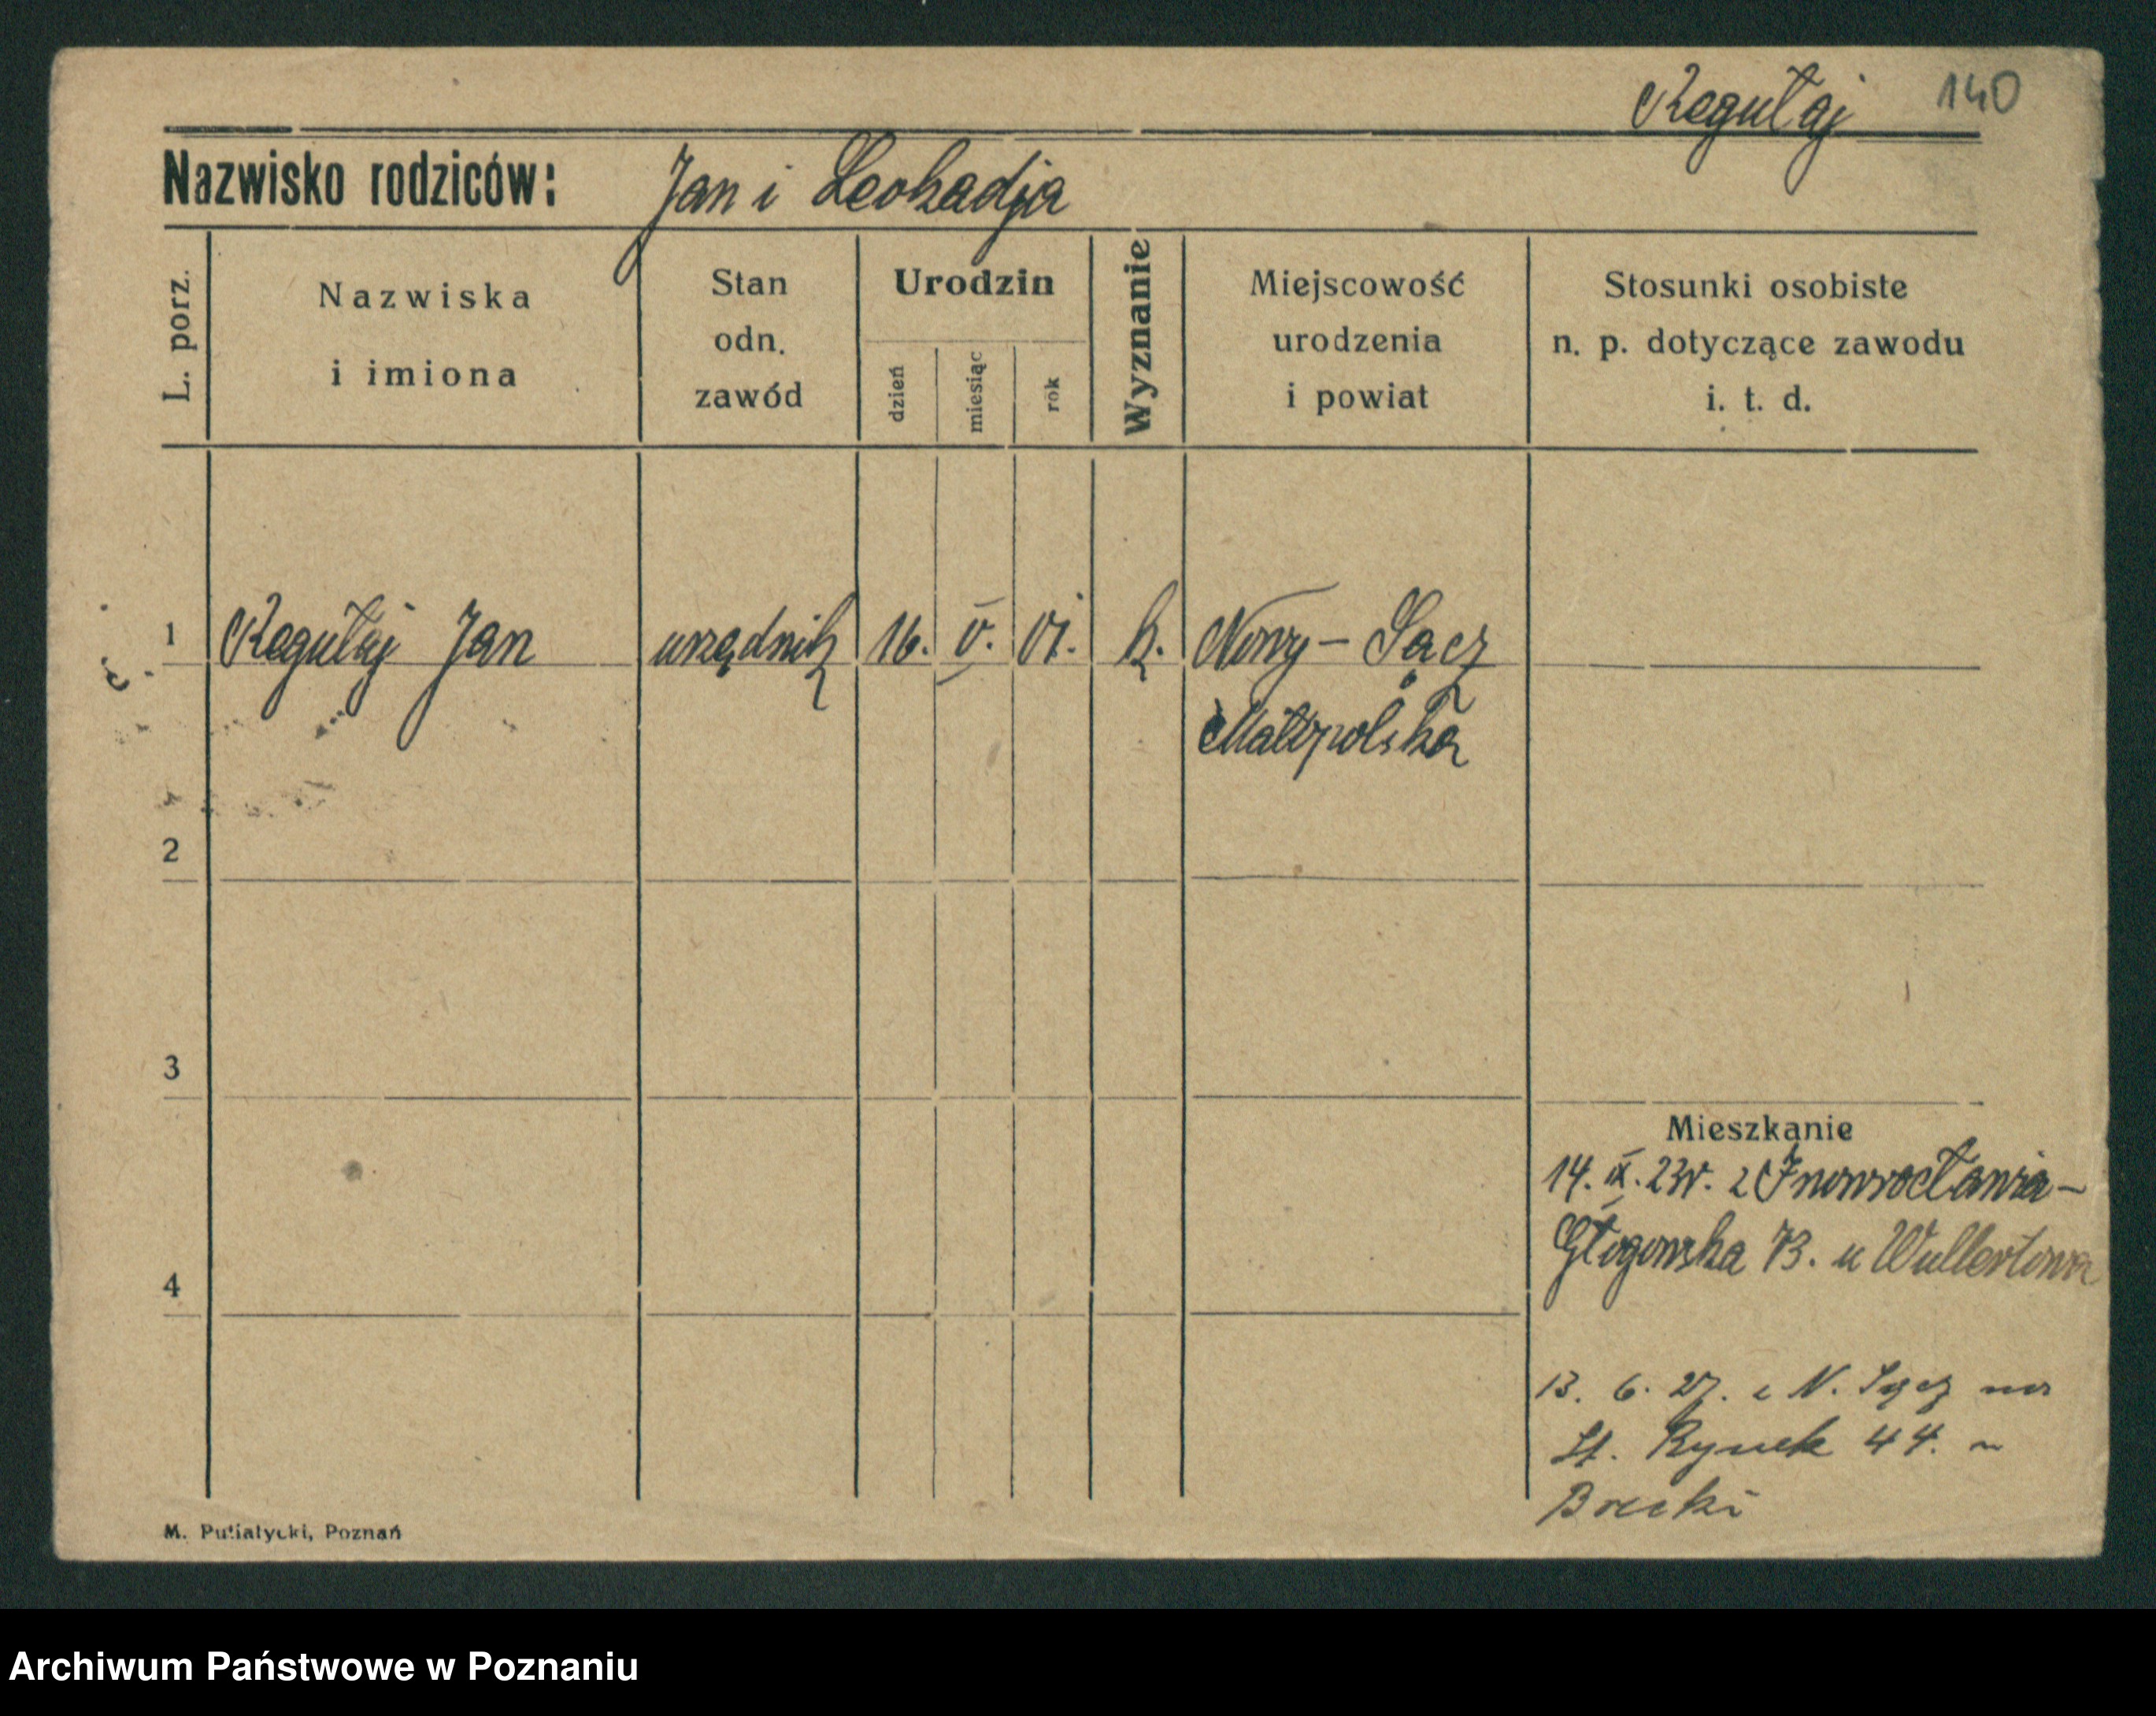 Regułaj 140
Nazwisko rodziców: Jan i Leokadja
L. porz.
Nazwiska
i imiona
Stan
odn.
zawód
Urodzin
dzień
miesiąc
rok
Wyznanie
Miejscowość
urodzenia
i powiat
Stosunki osobiste
n. p. dotyczące zawodu
i. t. d.
1 Regułaj Jan urzędnik 16. V. 01. k. Nowy-Sącz
Małopolska
2
3
4
Mieszkanie
14. IX. 23r. z Inowrocławia -
Głogowska 73. u
13. 6. 27. z N. Sącz na
St. Rynek 44.
M. Putiatycki, Poznań
Archiwum Państwowe w Poznaniu